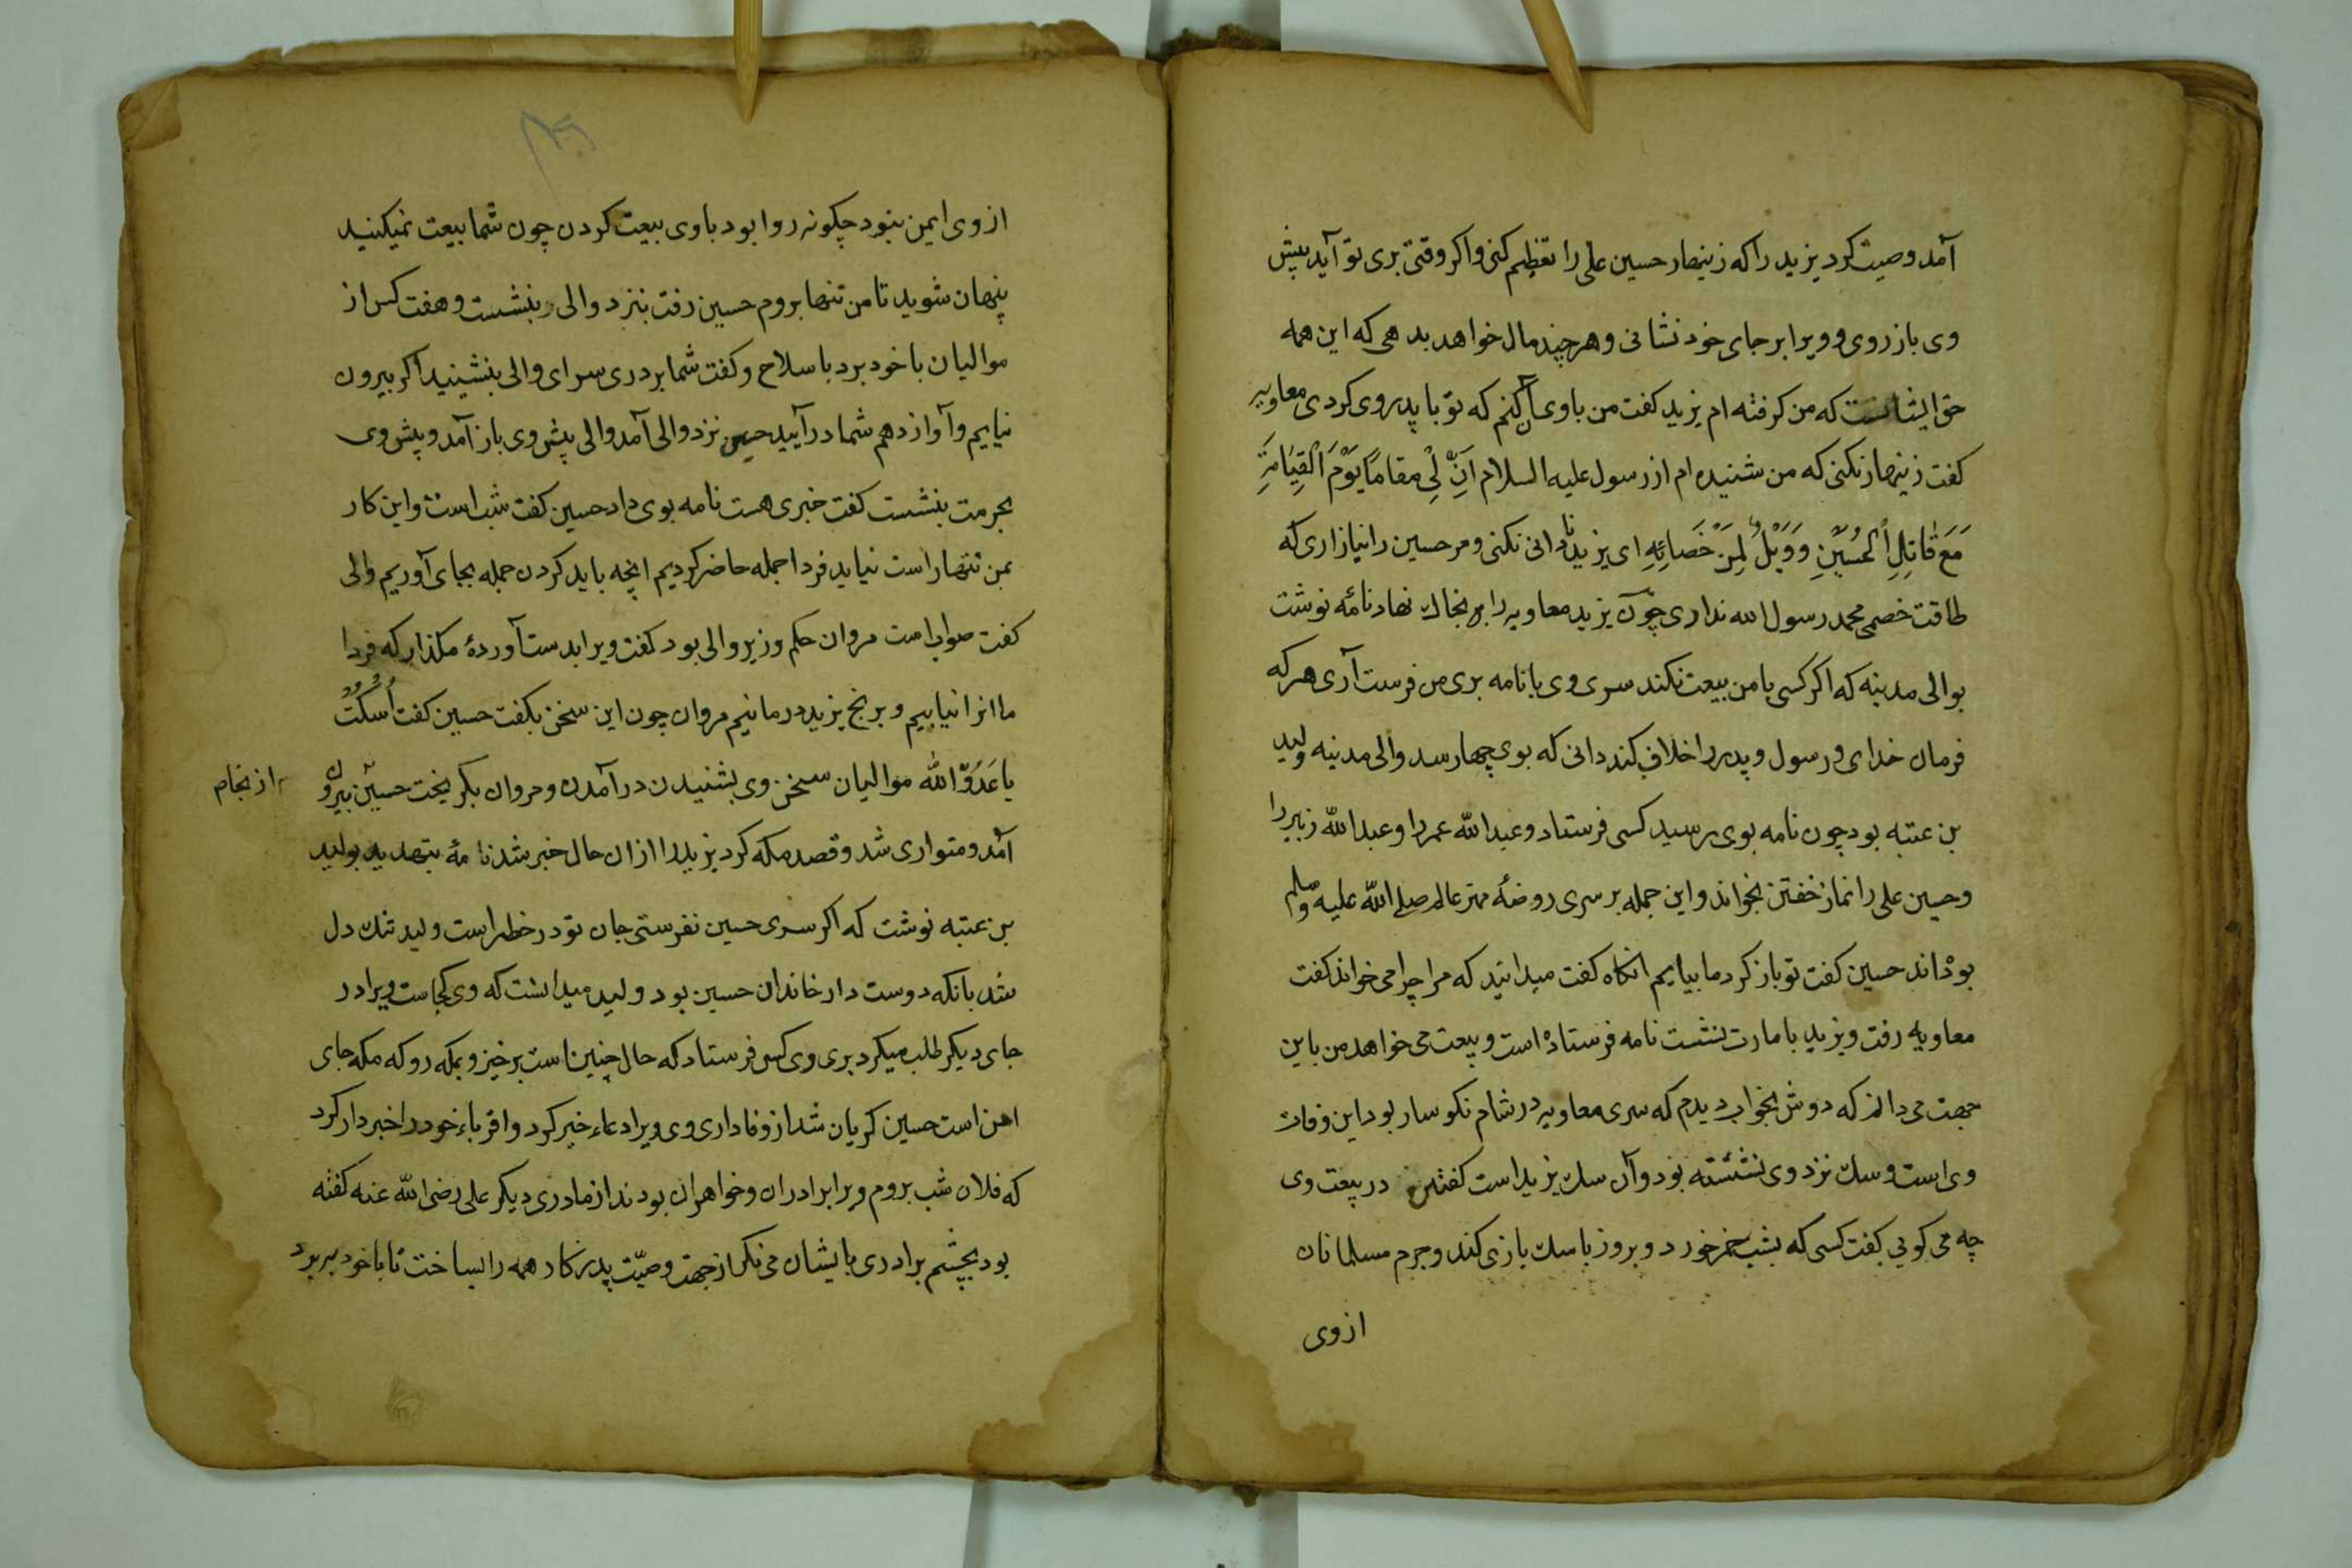 آمد وصیت کرد یزید را که زینهار حسین علی را تعظیم کنی واکر وقتی بری تو آید پیش
وی باز روی و ویرا بر جای خود نشانی وهر چند مال خواهد بدهی که این همه
حق ایشانست که من کرفته ام یزید کفت من با وی آن کنم که تو با پدر وی کردی معاویه
کفت زینهار نکنی که من شنیده ام از رسول علیه السلام اَنَّ لِیْ مقامًا یَوْمَ الْقِیٰامَةِ
مَعَ قٰاتِلِ الْحُسَیْنِ وَوَیْلٌ لِمَنْ خَصٰائِهِ ای یزید نادانی نکنی ومر حسین را نیازاری که
طاقت خصمی محمد رسول الله نداری چون یزید معاویه را بخاک نهاد نامهٔ نوشت
بوالی مدینه که اکر کسی با من بیعت نکند سری وی با نامه بری من فرست آری هر که
فرمان خدای و رسول و پدر را خلاف کند دانی که بوی چها رسد والی مدینه ولید
بن عتبه بود چون نامه بوی رسید کسی فرستاد وعبد الله عمر را وعبد الله زبیر را
وحسین علی را نماز خفتن بخواند واین جمله بر سری روضهٔ مهتر عالم صلی الله علیه وسلم
بودند حسین کفت تو باز کرد ما بیایم انکاه کفت میدانید که مرا چرا می خواند کفت
معاویه رفت ویزید بامارت نشست نامه فرستاده است وبیعت می خواهد من باین
جهت می دانم که دوش بخواب دیدم که سری معاویه در شام نکوسار بود این وفات
وی است وسک نزد وی نشسته بود وآن سک یزید است کفتند در بیعت وی
چه می کویی کفت کسی که بشب خمر خورد وبروز با سک بازی کند وجرم مسلمانان
از وی
از وی ایمن نبود چکونه روا بود با وی بیعت کردن چون شما بیعت نمیکنید
پنهان شوید تا من تنها بروم حسین رفت بنزد والی وبنشست وهفت کس از
موالیان با خود برد با سلاح وکفت شما بر دری سرای والی بنشینید اکر بیرون
نیایم وآواز دهم شما در آیید حسین نزد والی آمد والی پیش وی باز آمد وپیش وی
بحرمت بنشست کفت خبری هست نامه بوی داد حسین کفت شب است واین کار
بمن تنها راست نیاید فردا جمله حاضر کردیم انچه باید کردن جمله بجای آوریم والی
کفت صواب است مروان حکم وزیر والی بود کفت ویرا بدست آوردهٔ مکذار که فردا
ما انرا نیابیم وبرنج یزید درمانیم مروان چون این سخن بکفت حسین کفت اُسْکُتْ
یا عَدُوَّ اللّٰه موالیان سخن وی بشنیدن در آمدن ومروان بکریخت حسین بیرون از نجام
آمد ومتواری شد وقصد مکه کرد یزید را از ان حال خبر شد نامهٔ بتهدید بولید
بن عتبه نوشت که اکر سری حسین نفرستی جان تو در خطر است ولید تنک دل
شد بانکه دوست دار خاندان حسین بود ولید میدانست که وی کجاست ویرا در
جای دیکر طلب میکرد بری وی کس فرستاد که حال چنین است برخیز وبمکه رو که مکه جای
امن است حسین کریان شد از وفاداری وی ویرا دعاء خیر کرد واقرباء خود را خبردار کرد
که فلان شب بروم ویرا برادران وخواهران بودند از مادری دیکر علی رضی الله عنه کفته
بود بچشم برادری بایشان می نکر از جهت وصیّت پدر کار همه را بساخت تا با خود ببرد